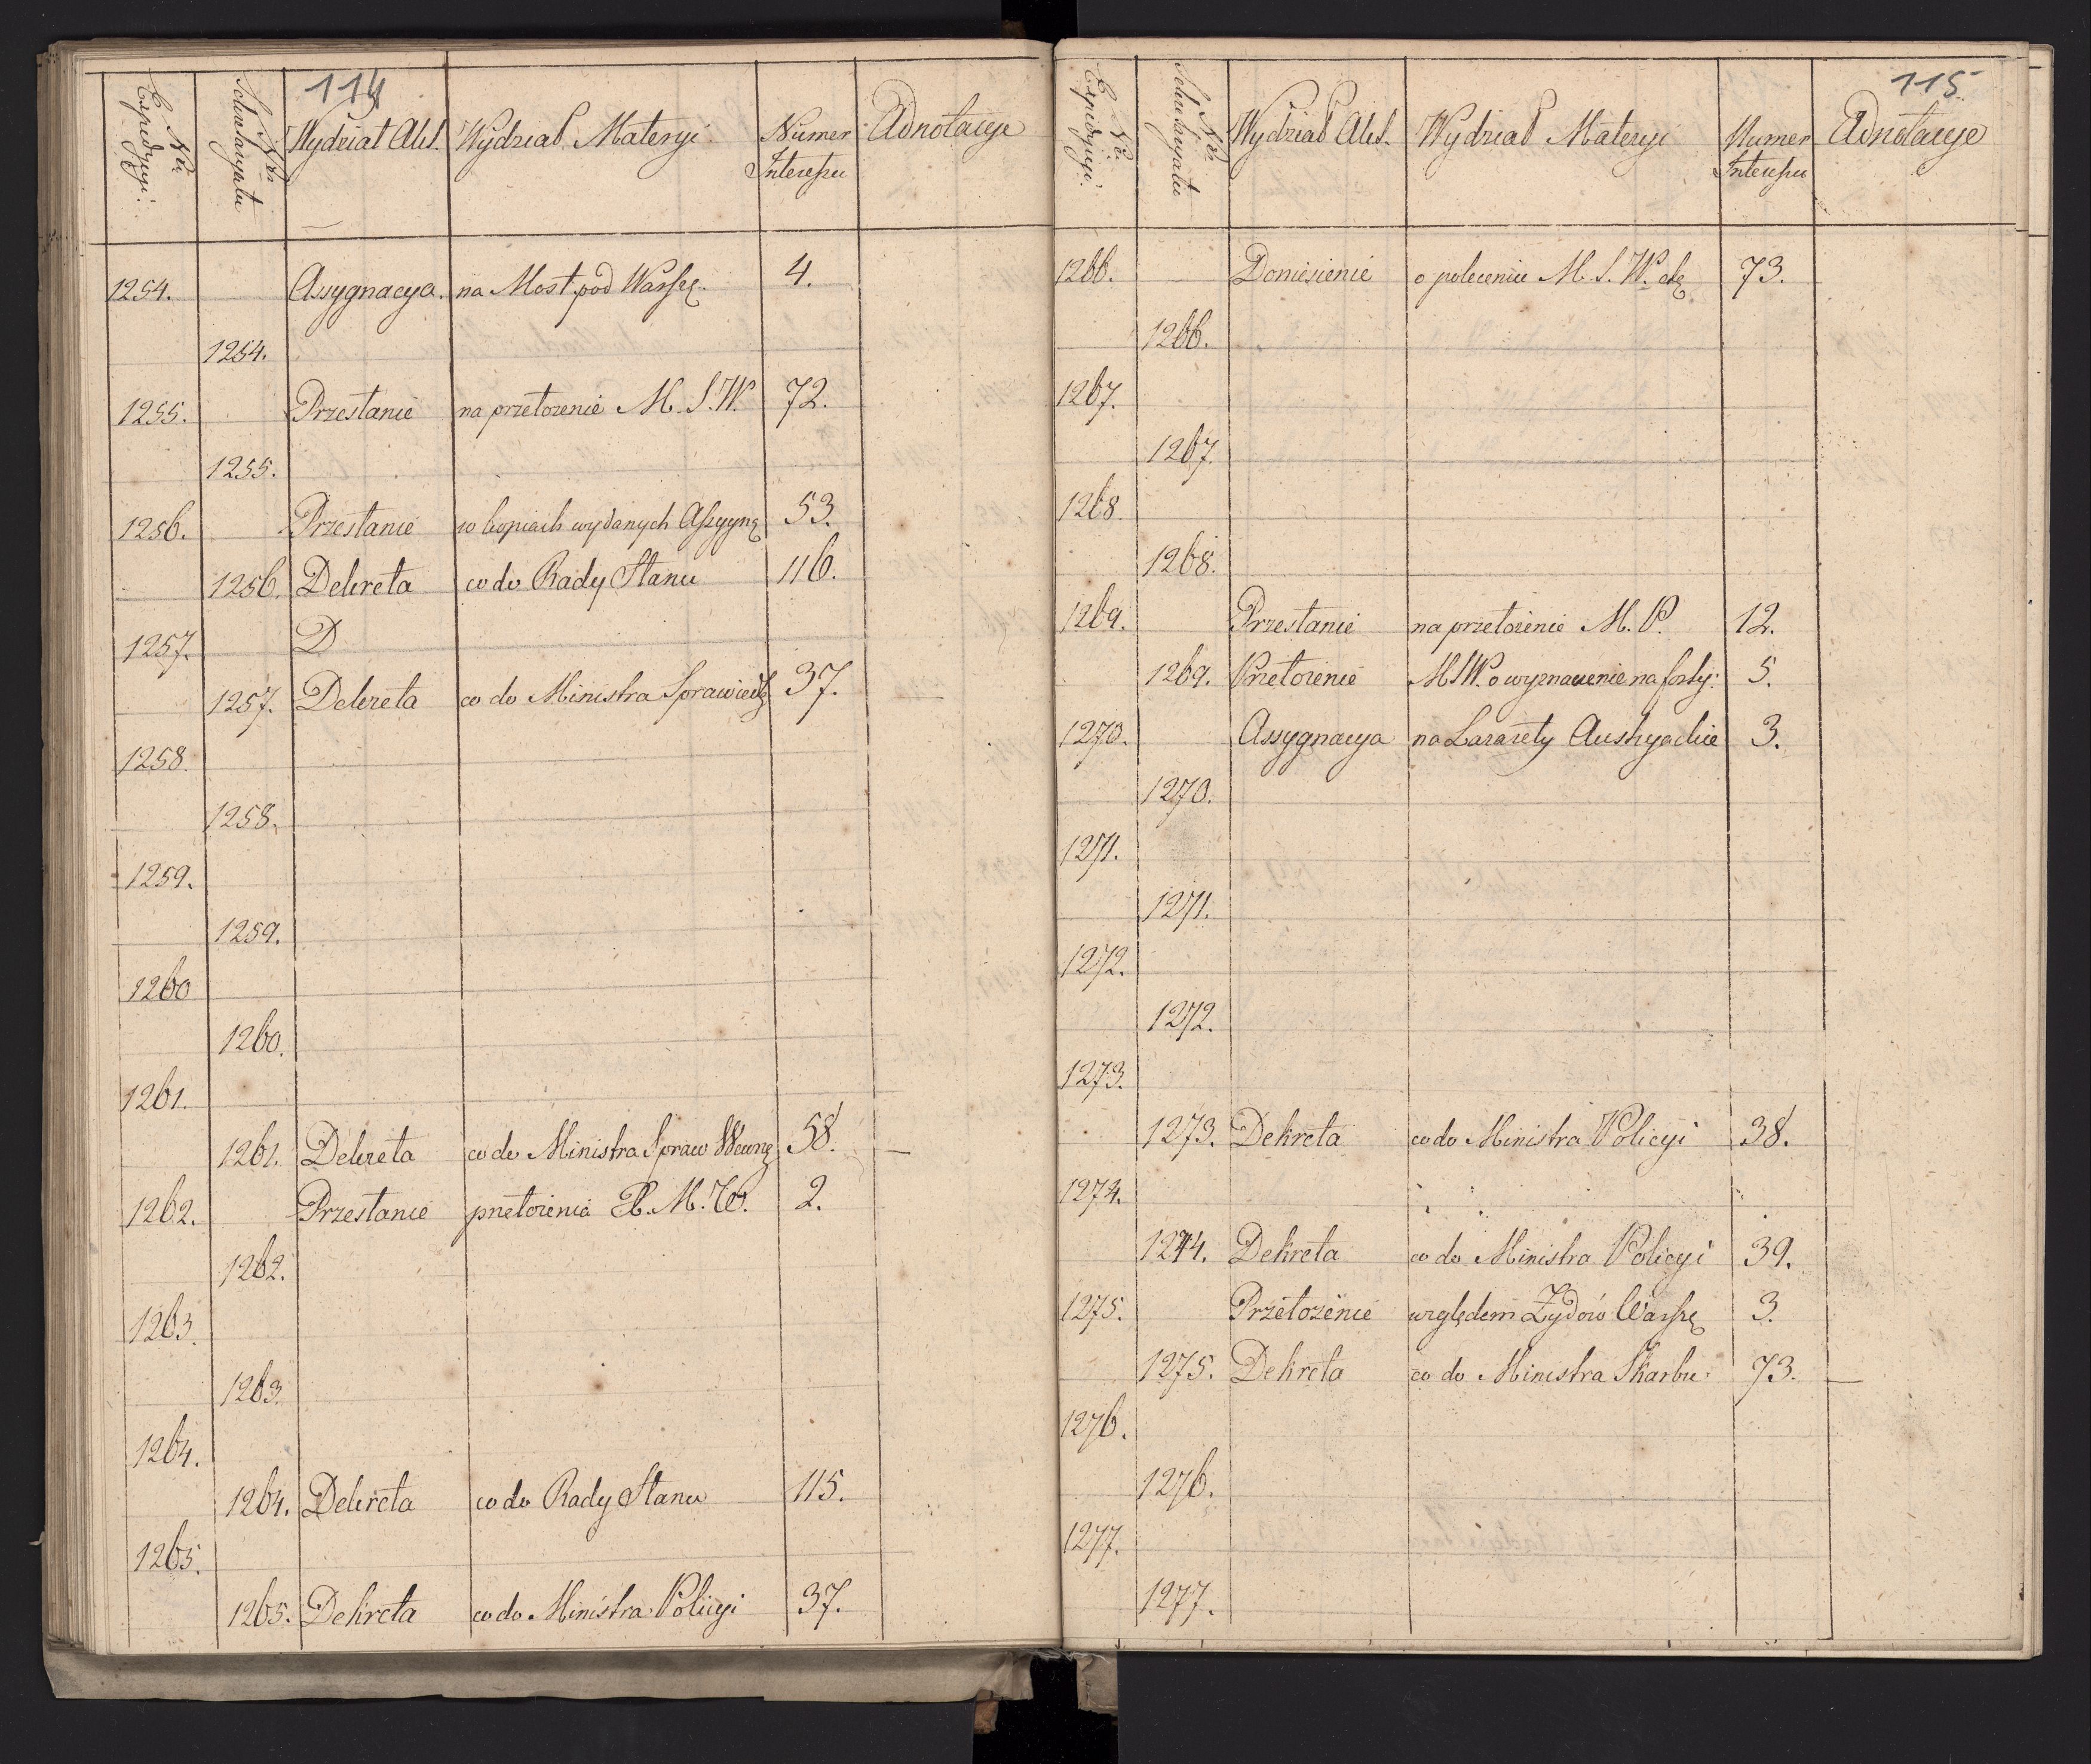 114
Nr. Expedycyi: Nr. Sekretaryatu Wydział Akt. Wydział Materyi Numer Interessu Adnotacye
1254. Assygnacya. na Most pod Warszę. 4.
1254.
1255. Przesłanie na przełożenie M. S. W. 72.
1255.
1256. Przesłanie w kopiach wydanych Assygnę 53.
1256. Dekreta co do Rady Stanu 116.
1257. D
1257. Dekreta co do Ministra Sprawiedlę 37. —
1258.
1258.
1259.
1259.
1260
1260.
1261.
1261. Dekreta co do Ministra Spraw Wewnę 58. —
1262. Przesłanie przełożenia M. W. 2.
1262.
1263.
1263.
1264.
1264. Dekreta co do Rady Stanu 115.
1265.
1265. Dekreta co do Ministra Policyi 37.
115
Nr. Expedycyi: Nr. Sekretaryatu Wydział Akt. Wydział Materyi Numer Interessu Adnotacye
1266. Doniesienie o polecenie M. S. W. 73.
1266.
1267.
1267.
1268.
1268.
1269. Przesłanie na przełożenie M. P. 12.
1269. Przełożenie M S W. o wyznaczenie na forty: 5.
1270. Assygnacya na Lazarety Austryackie 3.
1270.
1271.
1271.
1272.
1272.
1273.
1273. Dekreta co do Ministra Policyi 38.
1274.
1274. Dekreta co do Ministra Policyi 39.
1275. Przełożenie względem Żydów Warszę 3.
1275. Dekreta co do Ministra Skarbu 73. —
1276.
1276.
1277.
1277.